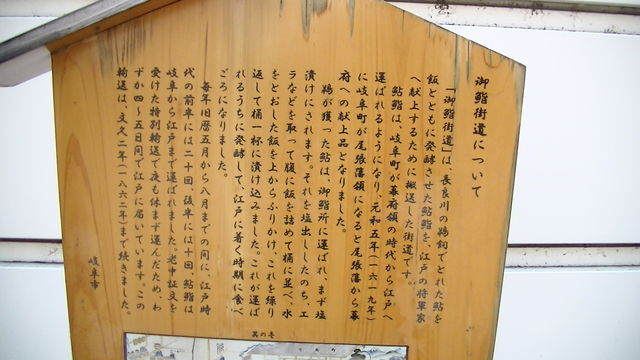 御鮨街道について
「御鮨街道」は、長良川の鵜飼でとれた鮎を
飯とともに発酵させた鮎鮨を、江戸の将軍家
へ献上するために搬送した街道です。
鮎鮨は、岐阜町が幕府領の時代から江戸へ
運ばれるようになり、元和五年(一六一九年)
に岐阜町が尾張藩領になると尾張藩から幕
府への献上品となりました。
鵜が獲った鮎は、御鮨所に運ばれ、まず塩
漬けにされます。それを塩出ししたのち、エ
ラなどを取って腹に飯を詰めて桶に並べ、水
をとおした飯を上からふりかけ、これを繰り
返して桶一杯に漬け込みました。これが運ば
れるうちに発酵して、江戸に着く時期に食べ
ごろになりました。
毎年旧暦五月から八月までの間に、江戸時
代の前半は二十回、後半には十回、鮎鮨は
岐阜から江戸まで運ばれました。老中証文を
受けた特別輸送で夜も休まず運んだため、わ
ずか四~五日間で江戸に届いています。この
輸送は、文久二年(一八六二年)まで続きました。
岐阜市
其の壱